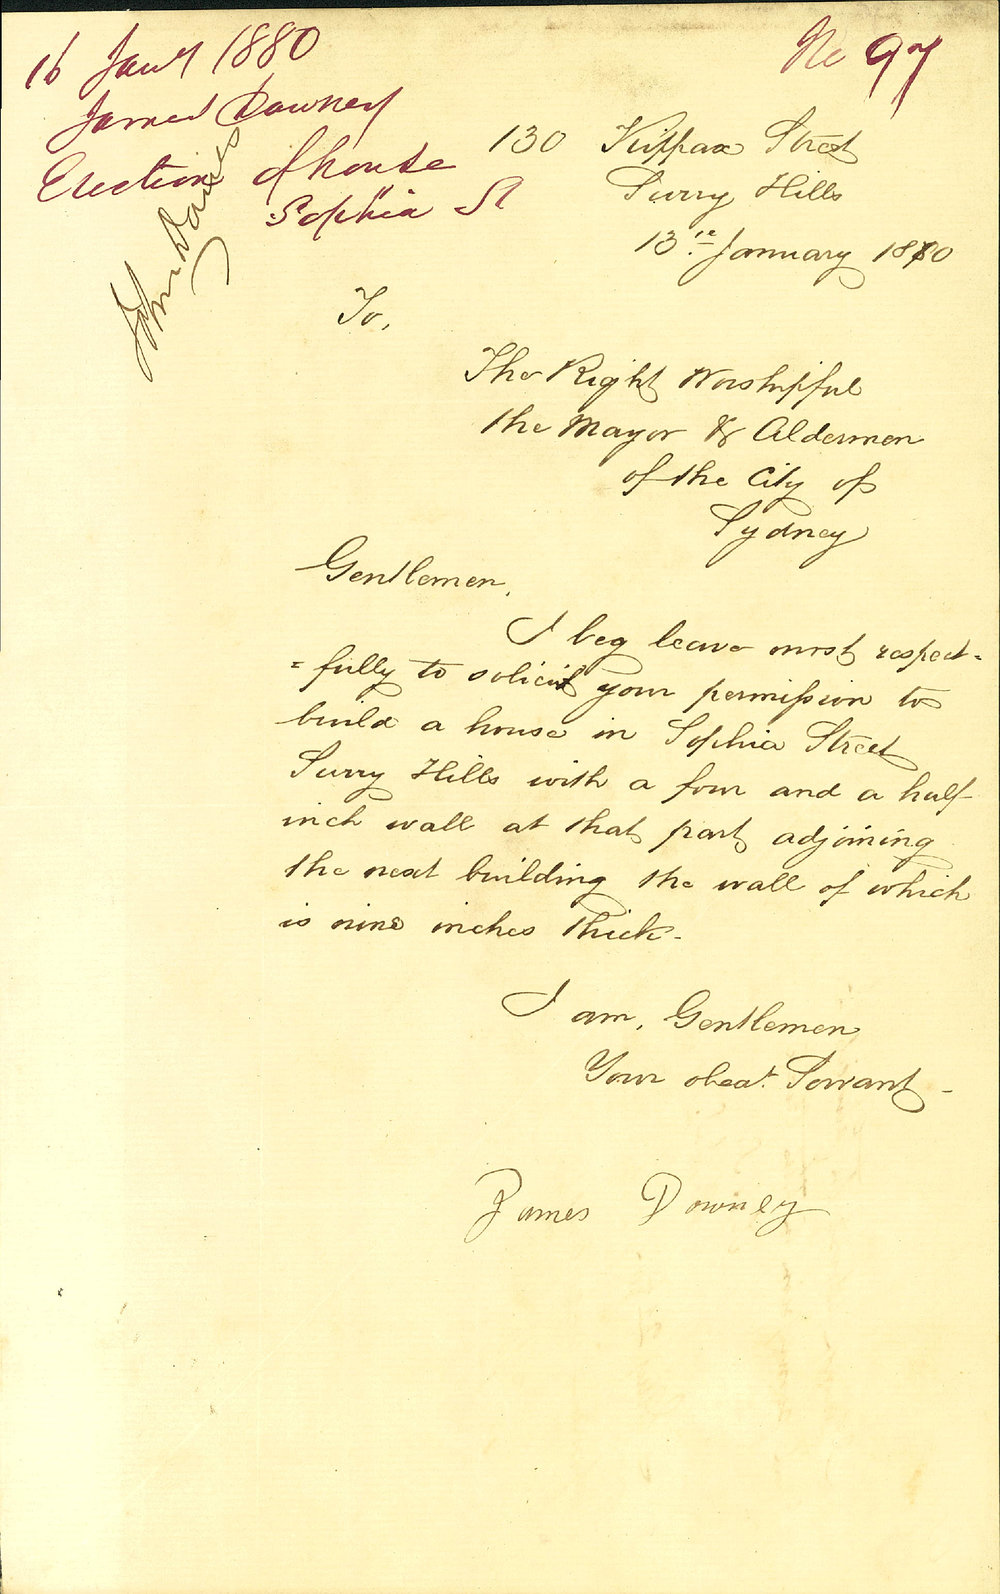 16 Jany 1880
No 97
James Downey
Erection of house
Sophia St
John Davies
130 Kippax Street
Surry Hills
13th January 1880
To,
The Right Worshipful
the Mayor & Aldermen
of the City of
Sydney
Gentlemen,
I beg leave most respect=
=fully to solicit your permission to
build a house in Sophia Street
Surry Hills with a four and a half
inch wall at that part adjoining
the next building the wall of which
is nine inches thick.
I am, Gentlemen
Your obedt. Servant
James Downey